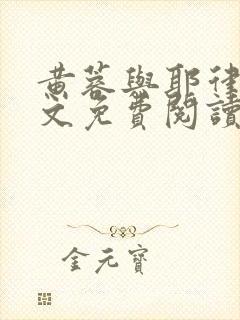 黄蓉與耶律
文免費閱讀
金元寶